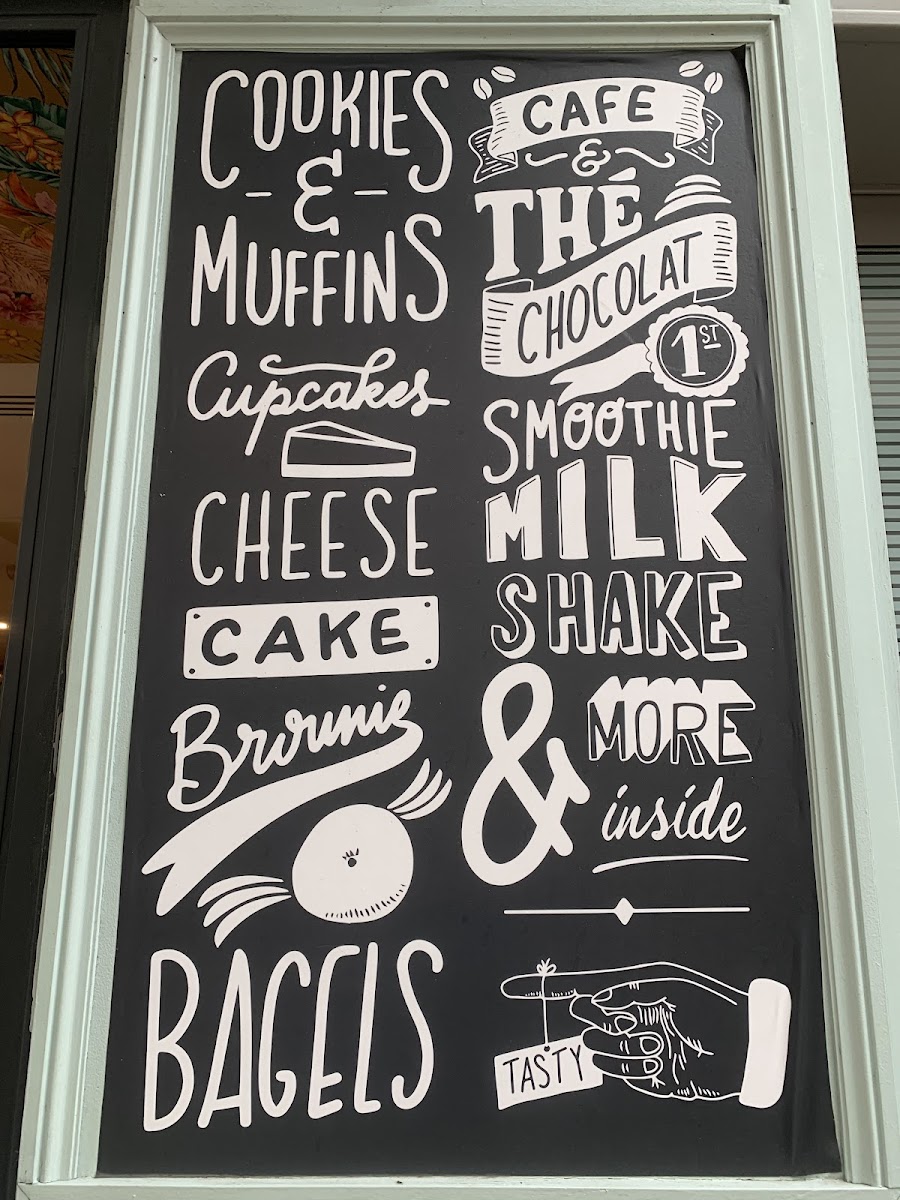 COOKIES
&
MUFFINS
Cupcakes
CHEESE
CAKE
Brownie
BAGELS
CAFE
&
THÉ
CHOCOLAT
1ST
SMOOTHIE
MILK
SHAKE
& MORE
inside
TASTY